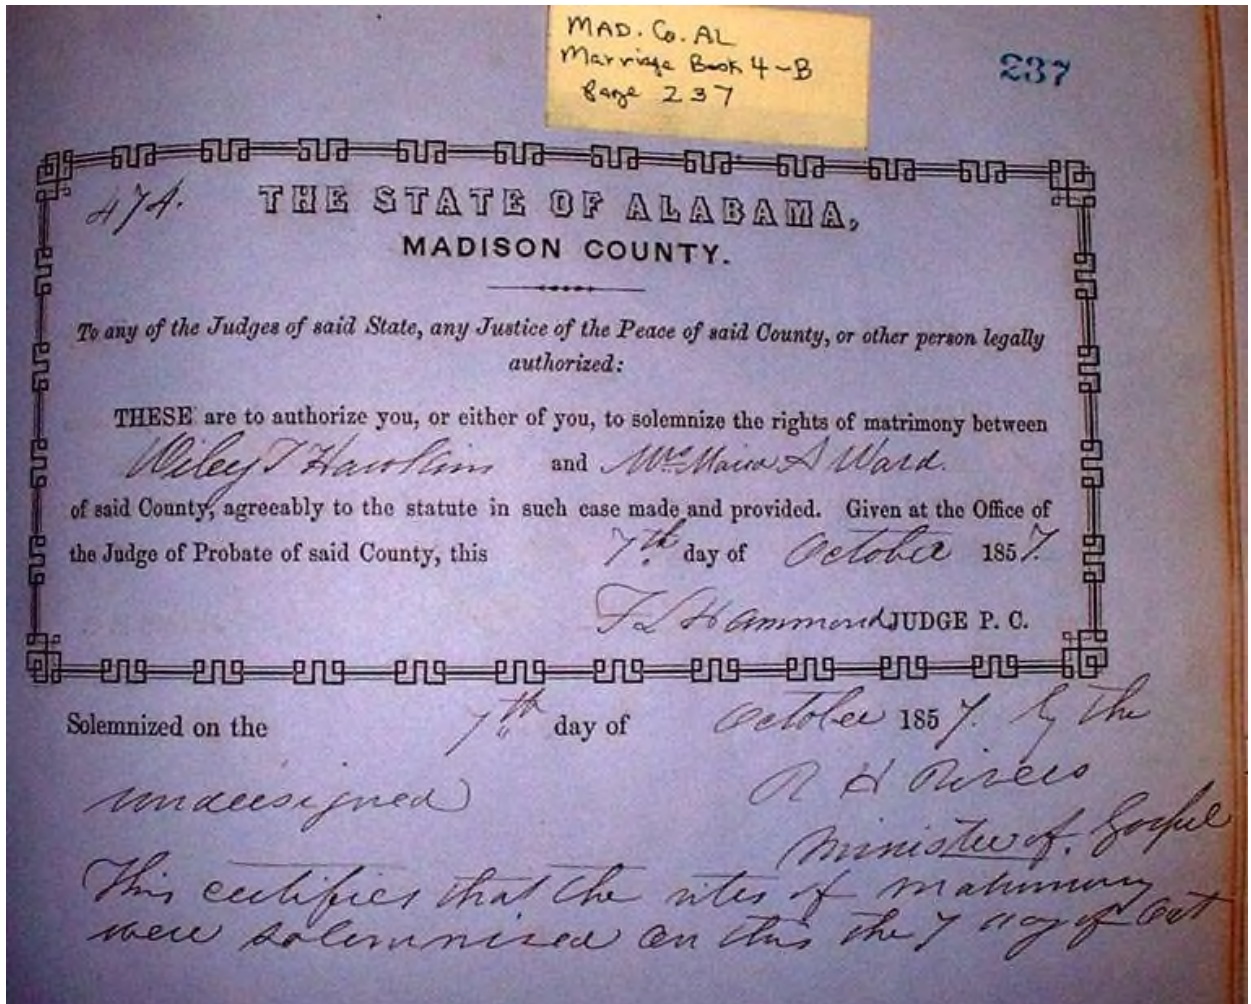 MAD. Co. AL
Marriage Book 4-B
Page 237
237
474.
THE STATE OF ALABAMA,
MADISON COUNTY.
To any of the Judges of said State, any Justice of the Peace of said County, or other person legally
authorized:
THESE are to authorize you, or either of you, to solemnize the rights of matrimony between
Wiley T Hawkins and Mrs Maria A Ward.
of said County, agreeably to the statute in such case made and provided. Given at the Office of
the Judge of Probate of said County, this 7th day of October 1857.
F L Hammond JUDGE P. C.
Solemnized on the 7th day of October 1857. by the
undersigned R H Rivers
Minister of. Gospel
This certifies that the rites of matrimony
were solemnised on this the 7 day of Oct